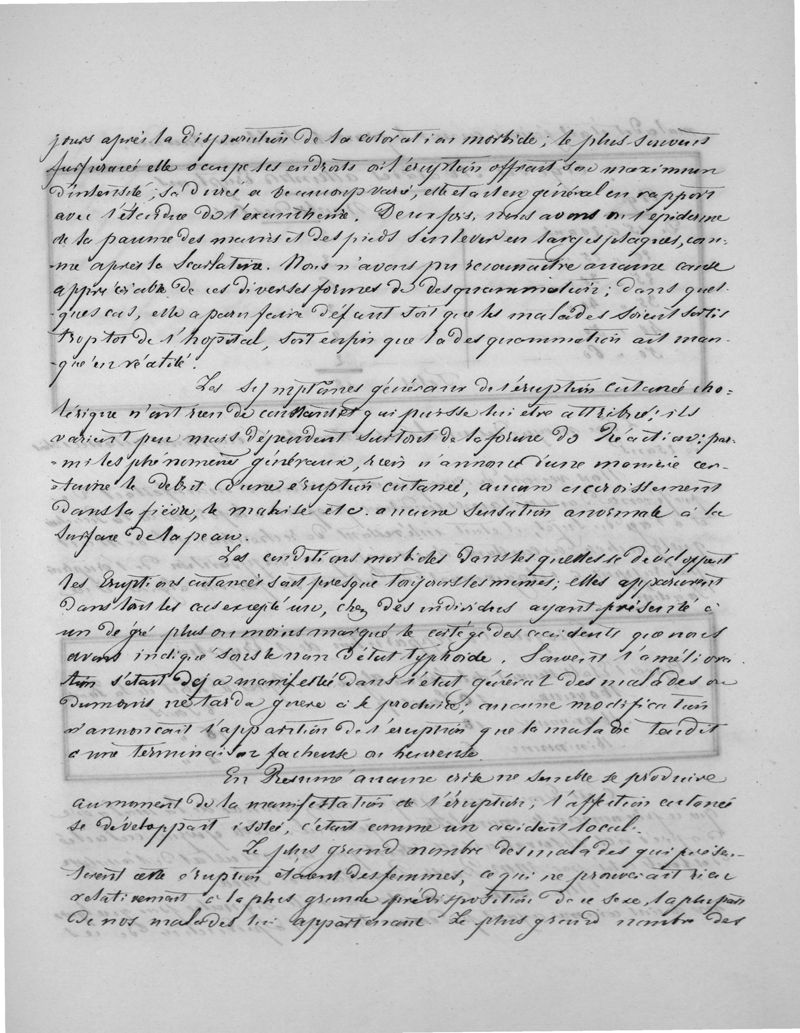 jours après la disparution de la coloration morbide; le plus souvent
furfuracé elle occupe les endroits où l'éruption offrait son maximum
d'intensité; sa durée a beaucoup varié, elle etait en général en rapport
avec l'étendue de l'exanthème. Deux fois, nous avons vu l'epiderme
de la paume des mains et des pieds s'enlever en larges plaques, com-
-me après la Scarlatine. Nous n'avons pu reconnaître aucune cause
appréciable de ces diverses formes de desquammation; dans quel-
-ques cas, elle a paru faire défaut soit que les malades soient sortis
trop tôt de l'hopital, soit enfin que la desquammation ait man-
-qué en réalité.
Les Symptômes généraux de l'éruption cutanée cho-
lérique n'ont rien de constant et qui puisse lui être attribué; ils
varient peu mais dépendent surtout de la forme de Réaction; par-
-mi les phénomènes généraux, rien n'annonce d'une manière cer-
-taine le debut d'une éruption cutanée, aucun accroissement
dans la fièvre, le malaise etc. aucune sensation anormale à la
surface de la peau.
Les conditions morbides dans lesquelles se développent
les Eruptions cutanées sont presque toujours les mêmes; elles apparurent
dans tout les cas excepté un, chez des individus ayant présenté à
un degré plus ou moins marqué le cortége des accidents que nous
avons indiqué sous le nom d'état typhoïde. Souvent l'améliora-
tion s'était déjà manifestée dans l'état général des malades ou
du moins ne tarda guere à se produire; aucune modification
n'annoncait l'apparition de l'éruption que la maladie tendit
à une terminaison facheuse ou heureuse.
En Resumé aucune crise ne semble se produire
au moment de la manifestation de l'éruption; l'affection cutanée
se développant isolée, c'etait comme un accident local.
Le plus grand nombre des malades qui présen-
-tèrent cette éruption étaient des femmes, ce qui ne prouverait rien
relativement à la plus grande prédisposition de ce sexe, la plupart
de nos malades lui appartenant. Le plus grand nombre des